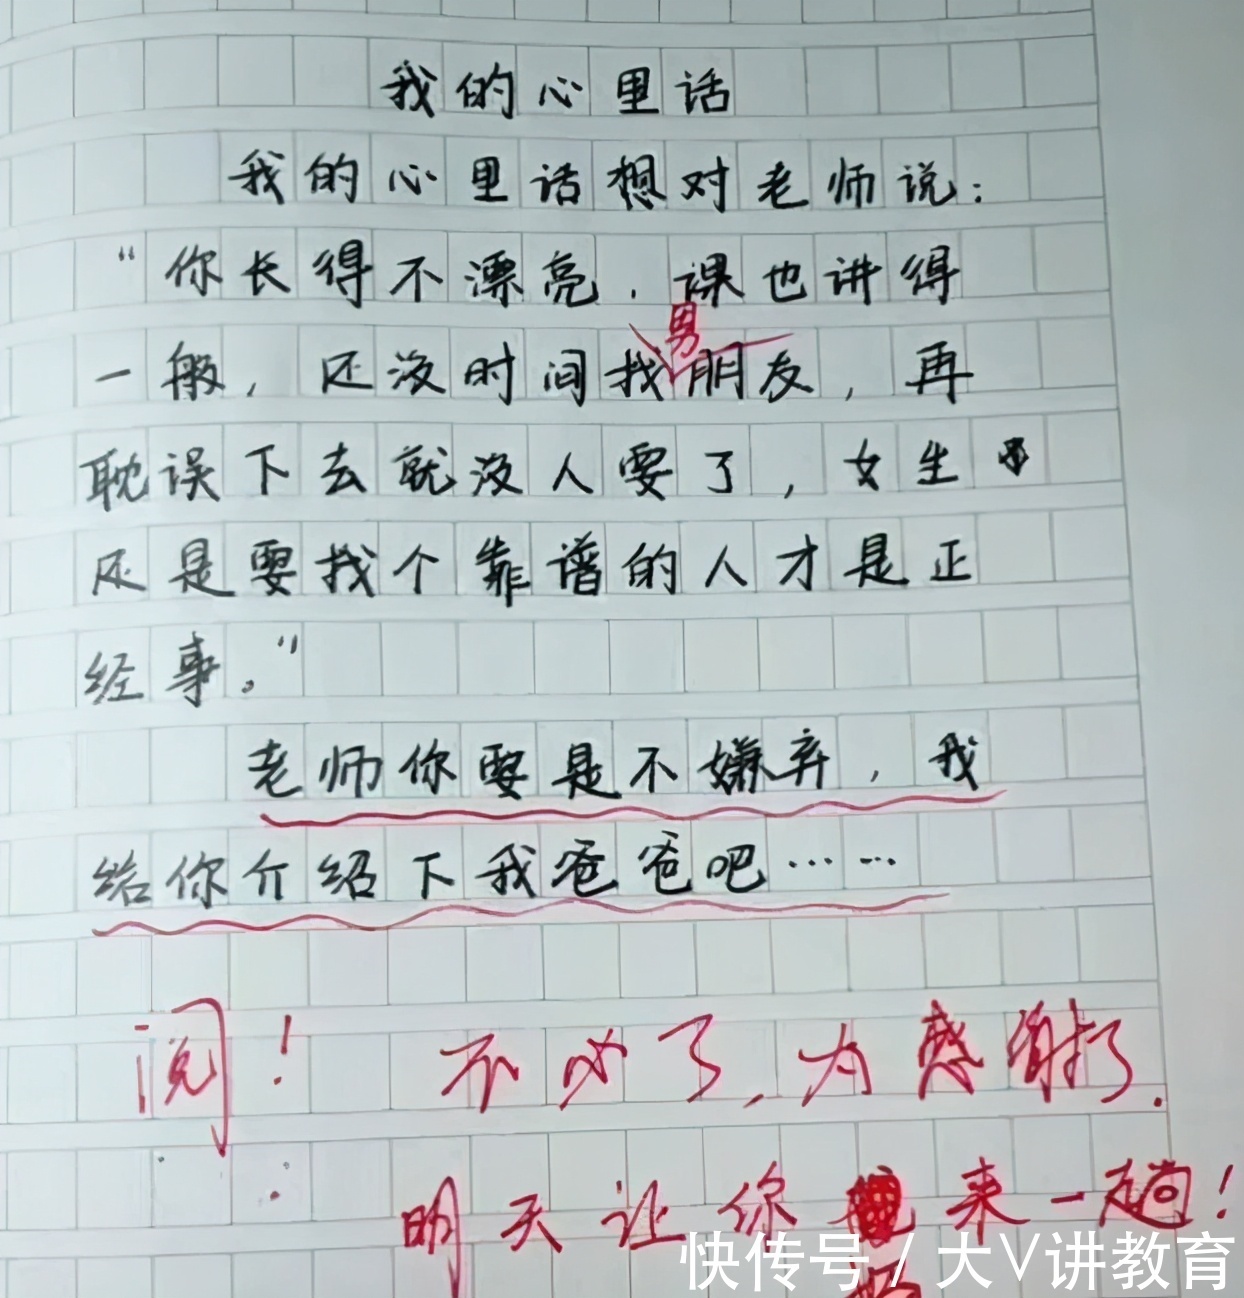 我的心里话
我的心里话想对老师说：
“你长得不漂亮，课也讲得
一般，还没时间找男朋友，再
耽误下去就没人要了，女生
还是要找个靠谱的人才是正
经事。”
老师你要是不嫌弃，我
给你介绍下我爸爸吧……
阅！ 不必了，感谢了.
明天让你来一趟！
快传号 / 大V讲教育